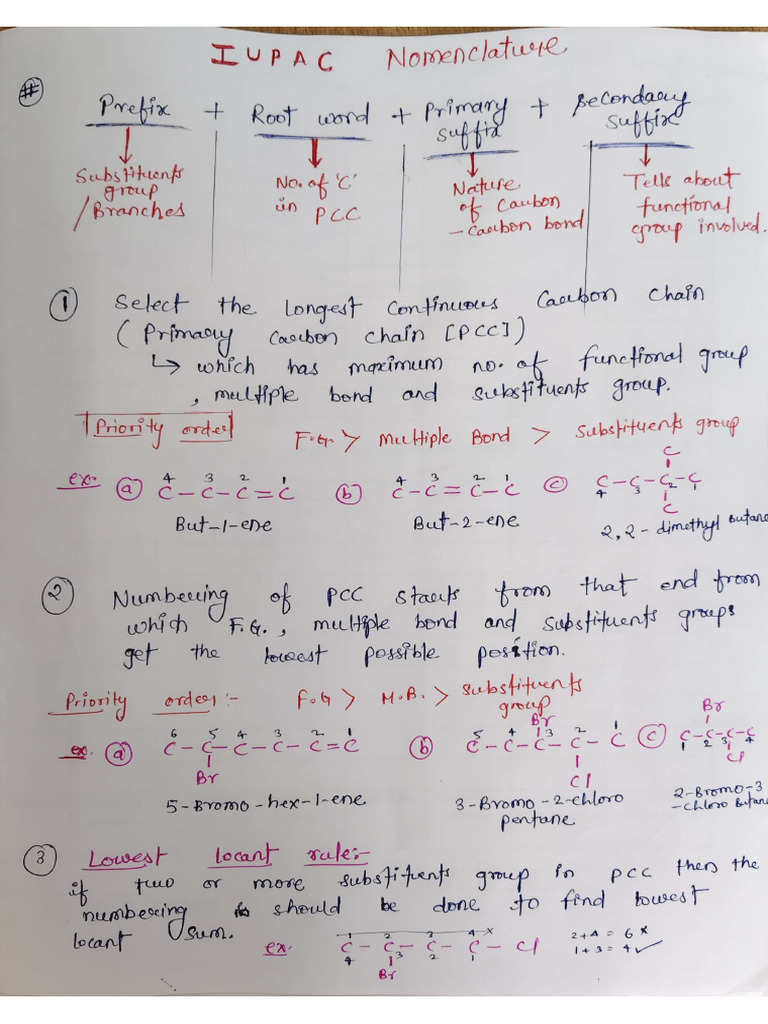 IUPAC Nomenclature
# Prefix + Root word + Primary suffix + Secondary suffix
Substituents group / Branches
No. of 'C' in PCC
Nature of Carbon - Carbon bond
Tells about functional group involved.
① Select the longest continuous Carbon chain
( Primary Carbon chain [PCC])
↳ which has maximum no. of functional group
, multiple bond and substituents group.
Priority order F.G. > Multiple Bond > Substituents group
ex. ⓐ C - C - C = C ⓑ C - C = C - C ⓒ C - C - C - C
4 3 2 1 4 3 2 1 4 3 2 1
C C
But-1-ene But-2-ene 2,2-dimethyl Butane
② Numbering of PCC starts from that end from
which F.G., multiple bond and substituents groups
get the lowest possible position.
Priority order :- F.G > M.B. > substituents group
6 5 4 3 2 1 5 4 Br 3 2 1 Br
ex. ⓐ C - C - C - C - C = C ⓑ C - C - C - C - C ⓒ C - C - C - C
Br Cl 1 2 3 4 Cl
5-Bromo-hex-1-ene 3-Bromo-2-chloro pentane 2-Bromo-3-chloro Butane
③ Lowest locant rule:-
if two or more substituents group in PCC then the
numbering should be done to find lowest
locant sum.
1 2 3 4 x
ex. C - C - C - C - Cl
4 3 2 1
Br
2+4 = 6 x
1+3 = 4 ✓